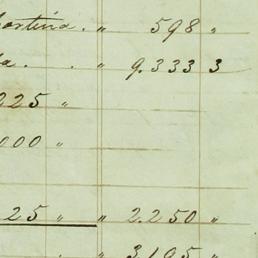 . " 598 "
a. . " 9.333 3
225 "
000 "
25 " " 2.250 "
. " 3.195 "